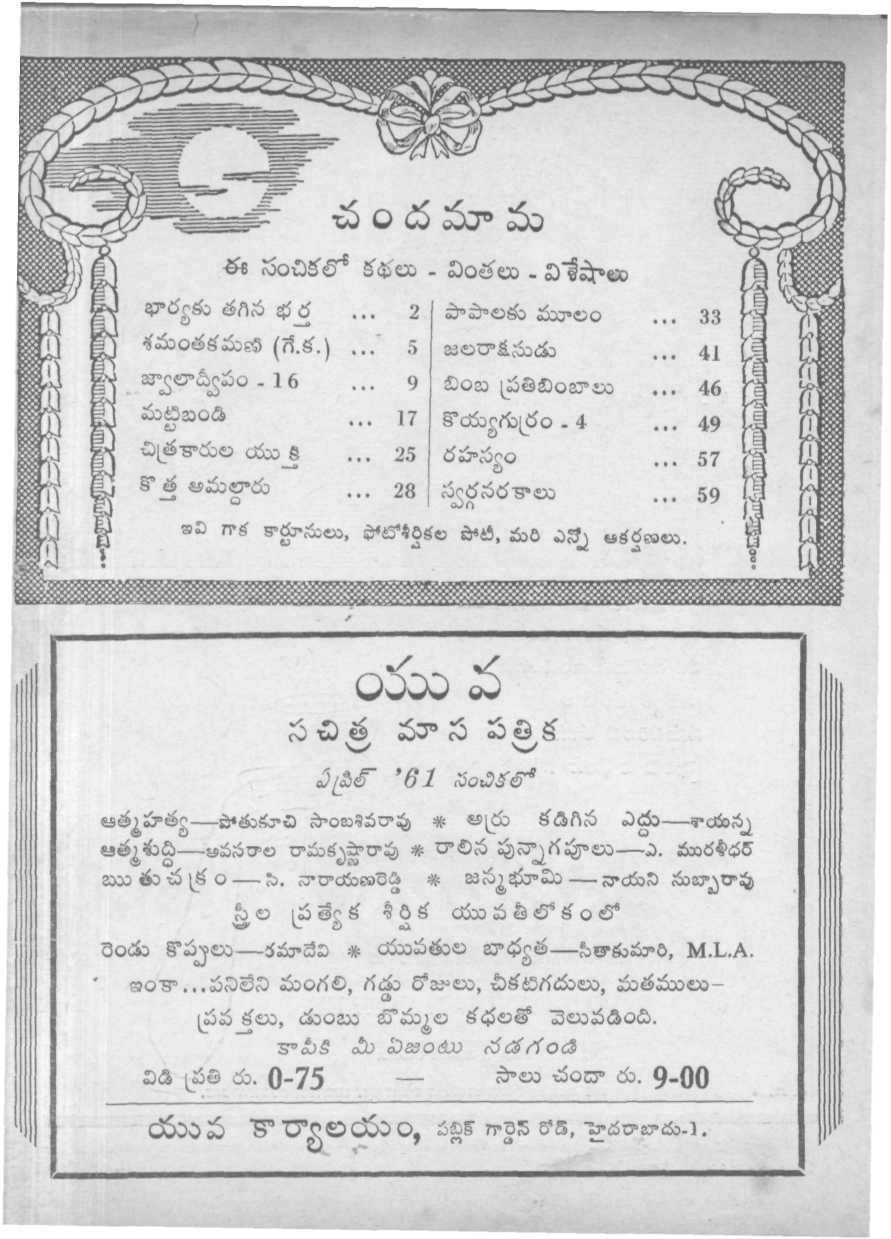 చందమామ
ఈ సంచికలో కథలు - వింతలు - విశేషాలు
భార్యకు తగిన భర్త ... 2
శమంతకమణి (గే.క.) ... 5
జ్వాలాద్వీపం - 16 ... 9
మట్టిబండి ... 17
చిత్రకారుల యుక్తి ... 25
కొత్త అమల్దారు ... 28
పాపాలకు మూలం ... 33
జలరాక్షసుడు ... 41
బింబ ప్రతిబింబాలు ... 46
కొయ్యగుర్రం - 4 ... 49
రహస్యం ... 57
స్వర్గనరకాలు ... 59
ఇవి గాక కార్టూనులు, ఫోటోశీర్షికల పోటీ, మరి ఎన్నో ఆకర్షణలు.
యువ
సచిత్ర మాస పత్రిక
ఏప్రిల్ '61 సంచికలో
ఆత్మహత్య—పోతుకూచి సాంబశివరావు * అర్రు కడిగిన ఎద్దు—శాయన్న
ఆత్మశుద్ధి—అవసరాల రామకృష్ణారావు * రాలిన పున్నాగపూలు—ఎ. మురళీధర్
ఋతుచక్రం—సి. నారాయణరెడ్డి * జన్మభూమి—నాయని సుబ్బారావు
స్త్రీల ప్రత్యేక శీర్షిక యువతీలోకంలో
రెండు కొప్పులు—రమాదేవి * యువతుల బాధ్యత—సీతాకుమారి, M.L.A.
ఇంకా...పనిలేని మంగలి, గడ్డు రోజులు, చీకటిగదులు, మతములు-
ప్రవక్తలు, డుంబు బొమ్మల కధలతో వెలువడింది.
కాపీకి మీ ఏజంటు నడగండి
విడి ప్రతి రు. 0-75 — సాలు చందా రు. 9-00
యువ కార్యాలయం, పబ్లిక్ గార్డెన్ రోడ్, హైదరాబాదు-1.